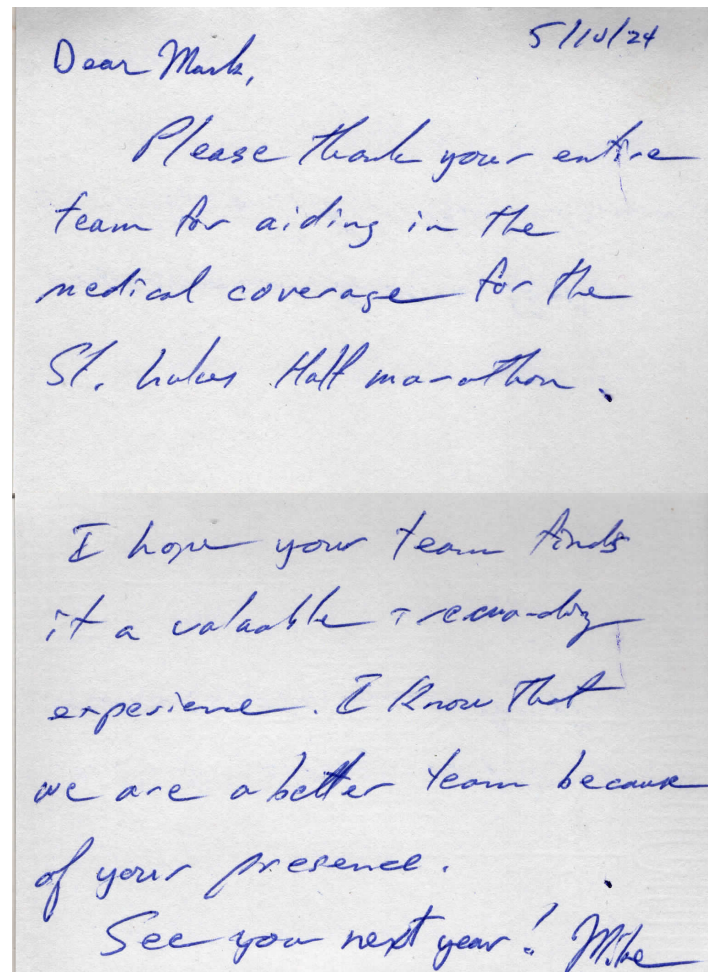 5/10/24
Dear Mark,
Please thank your entire
team for aiding in the
medical coverage for the
St. Lukes Half marathon.
I hope your team finds
it a valuable + rewarding
experience. I know that
we are a better team because
of your presence.
See you next year! Mike